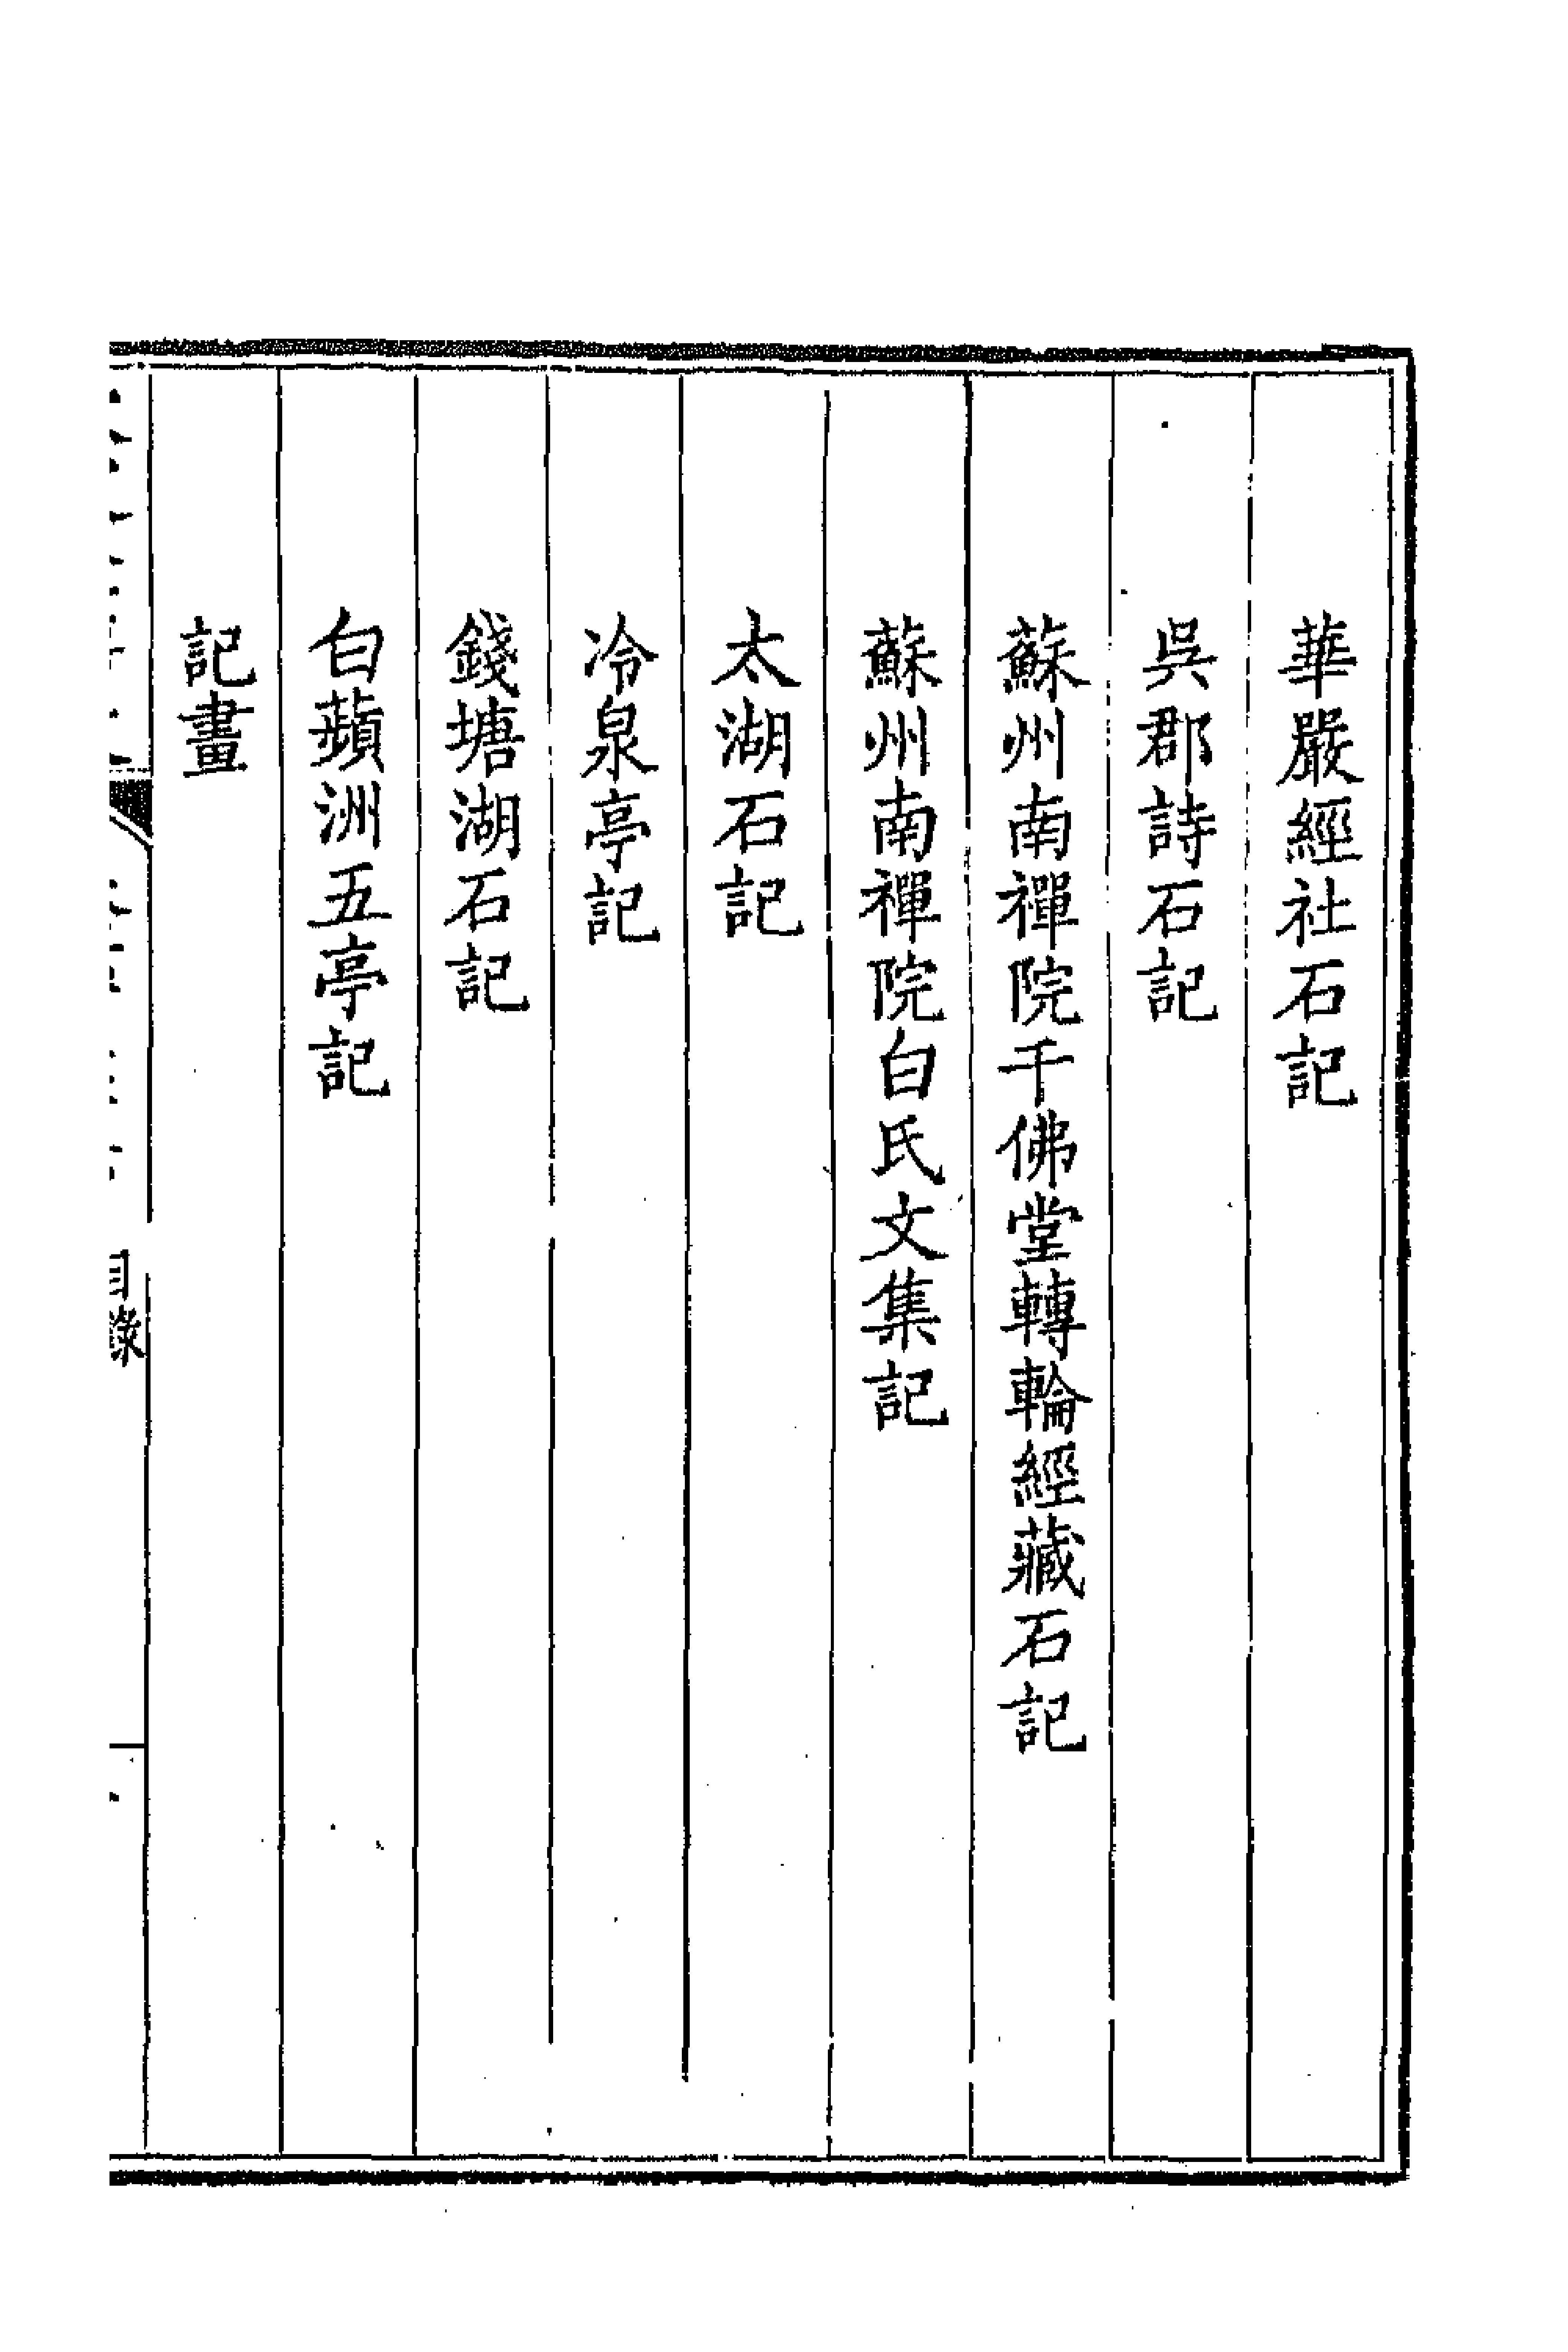 華嚴經社石記
吳郡詩石記
蘇州南禪院千佛堂轉輪經藏石記
蘇州南禪院白氏文集記
太湖石記
冷泉亭記
錢塘湖石記
白蘋洲五亭記
記畫
目錄